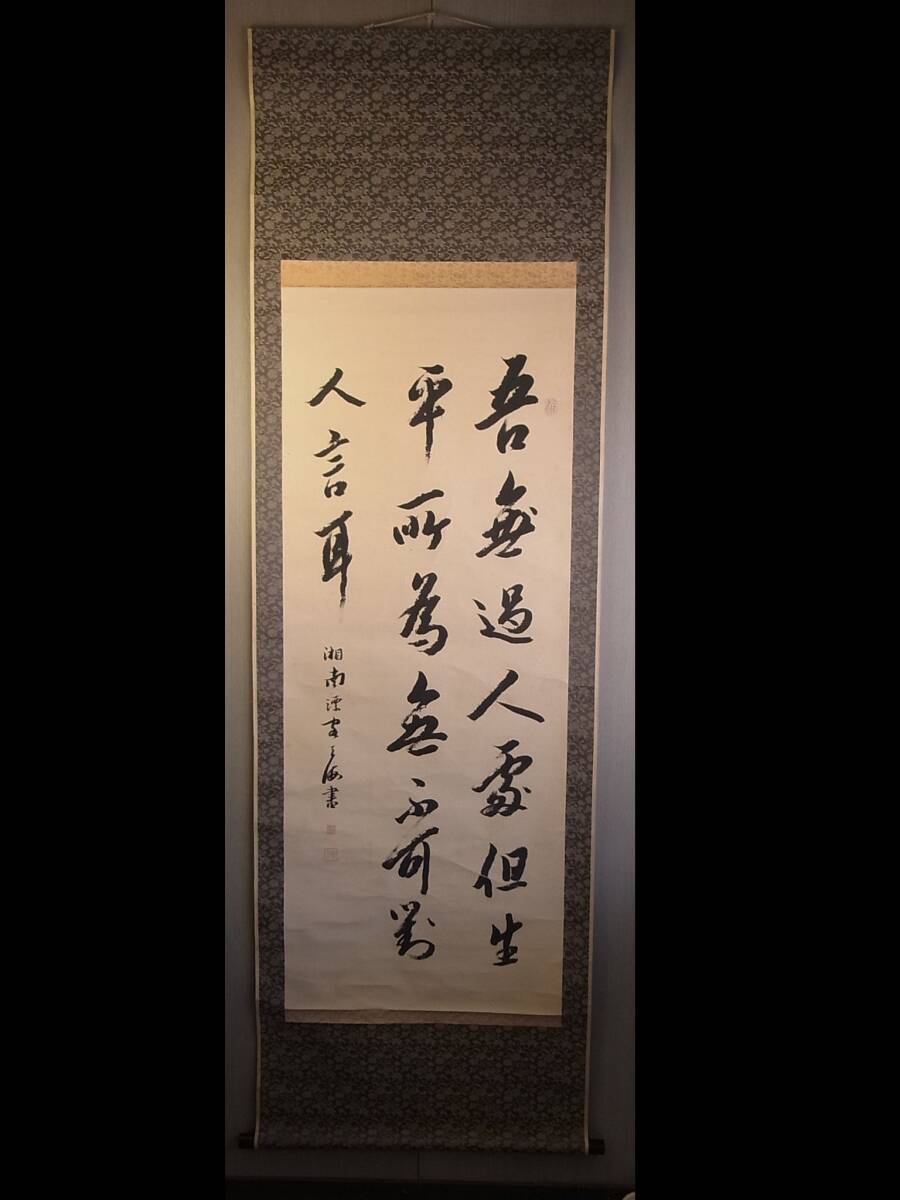 吾無過人處但生
平所為無不可對
人言耳
湘南漂客 海書